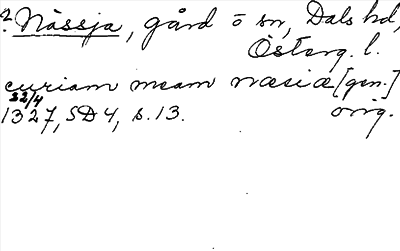 ? Nässja, gård o sn, Dals hd,
Österg. l.
curiam meam næsiæ [gen.]
22/4
1327, SD 4, s. 13. orig.